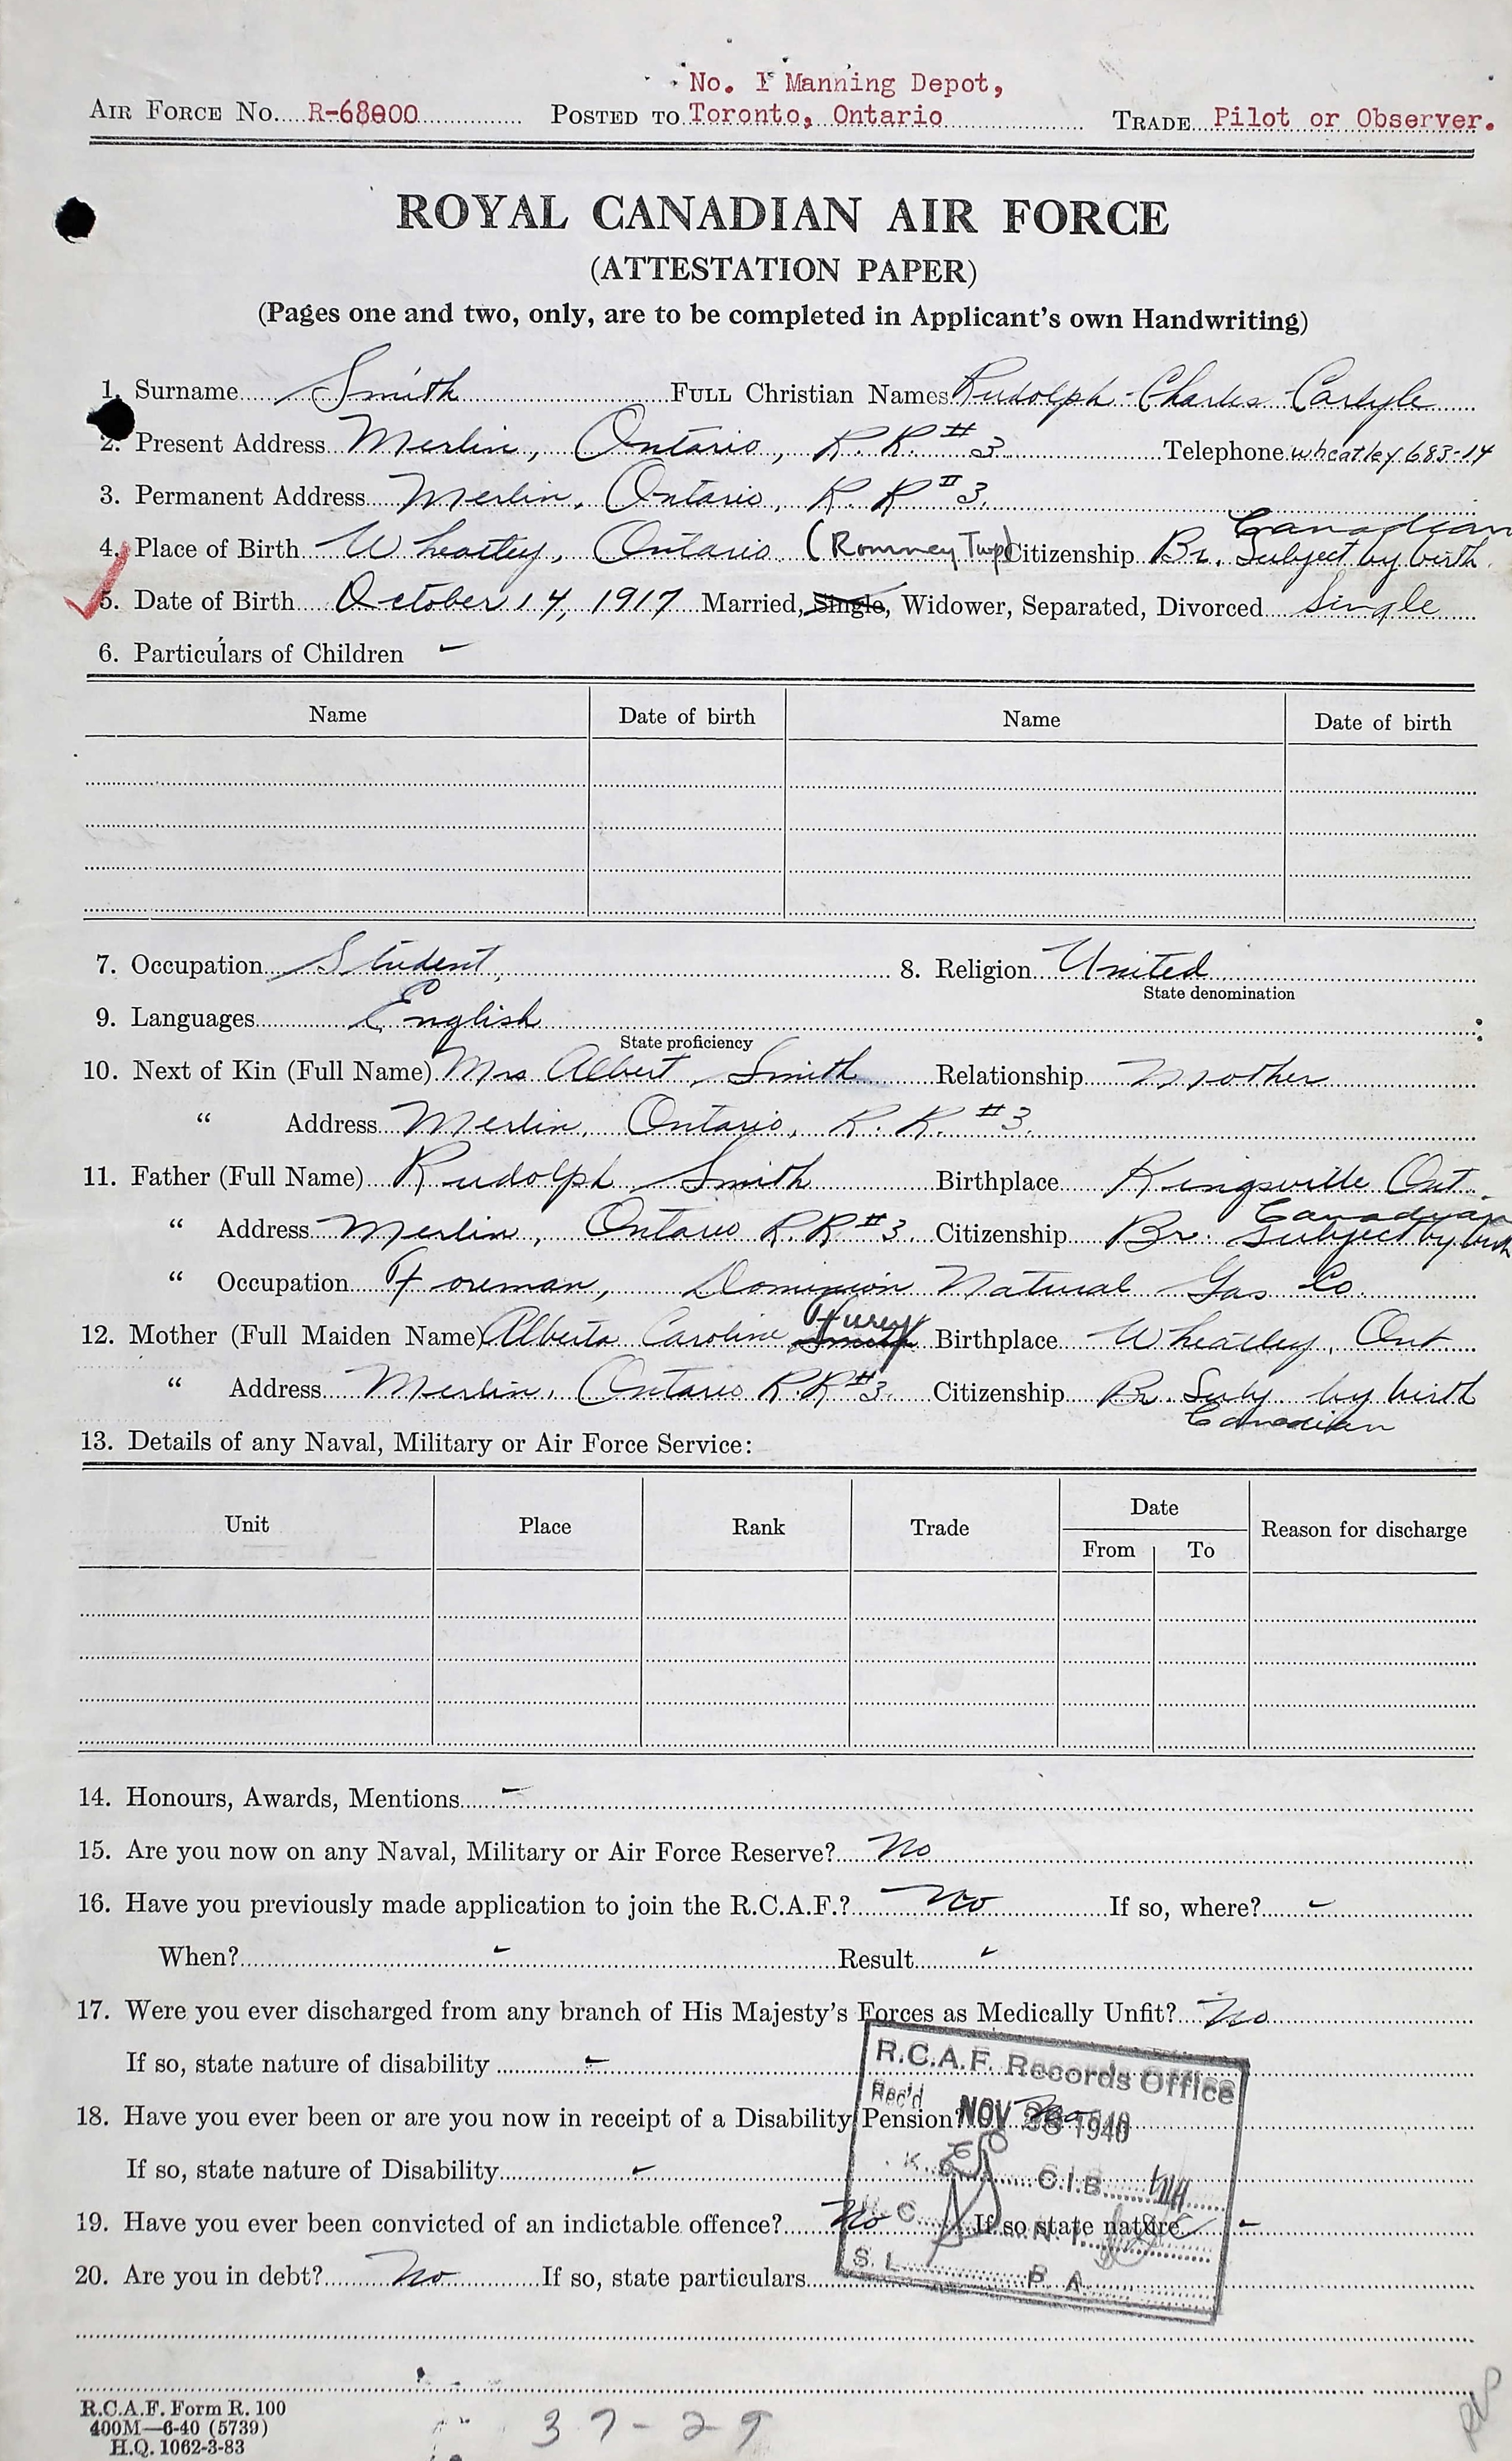 No. 1 Manning Depot,
AIR FORCE NO. R-68000 POSTED TO Toronto, Ontario TRADE Pilot or Observer.
ROYAL CANADIAN AIR FORCE
(ATTESTATION PAPER)
(Pages one and two, only, are to be completed in Applicant's own Handwriting)
1. Surname Smith FULL Christian Names Rudolph Charles Carlyle
2. Present Address Merlin, Ontario, R.R #3 Telephone wheatley 683-14
3. Permanent Address Merlin, Ontario, R.R #3.
Canadian
4. Place of Birth Wheatley, Ontario (Romney Twp) Citizenship Br. Subject by birth.
5. Date of Birth October 14, 1917 Married, Single, Widower, Separated, Divorced Single
6. Particulars of Children -
Name Date of birth Name Date of birth
7. Occupation Student, 8. Religion United
State denomination
9. Languages English
State proficiency
10. Next of Kin (Full Name) Mrs Albert Smith Relationship Mother
" Address Merlin, Ontario, R.R. #3.
11. Father (Full Name) Rudolph Smith Birthplace Kingsville Ont.
Canadian
" Address Merlin, Ontario R.R #3. Citizenship Br. Subject by birth
" Occupation Foreman, Dominion Natural Gas Co.
12. Mother (Full Maiden Name) Alberta Caroline Smith Birthplace Wheatley, Ont
" Address Merlin, Ontario R.R #3. Citizenship Br. Subj. by birth
Canadian
13. Details of any Naval, Military or Air Force Service:
Unit Place Rank Trade Date Reason for discharge
From To
14. Honours, Awards, Mentions -
15. Are you now on any Naval, Military or Air Force Reserve? No
16. Have you previously made application to join the R.C.A.F.? No If so, where? -
When? - Result -
17. Were you ever discharged from any branch of His Majesty's Forces as Medically Unfit? No
R.C.A.F. Records Office
If so, state nature of disability -
Rec'd
18. Have you ever been or are you now in receipt of a Disability Pension? No
NOV 28 1940
If so, state nature of Disability -
K. C.I.B.
19. Have you ever been convicted of an indictable offence? No If so state nature -
C. N.
20. Are you in debt? No If so, state particulars
S. L. P. A.
R.C.A.F. Form R. 100
400M—6-40 (5739)
H.Q. 1062-3-83
37-29